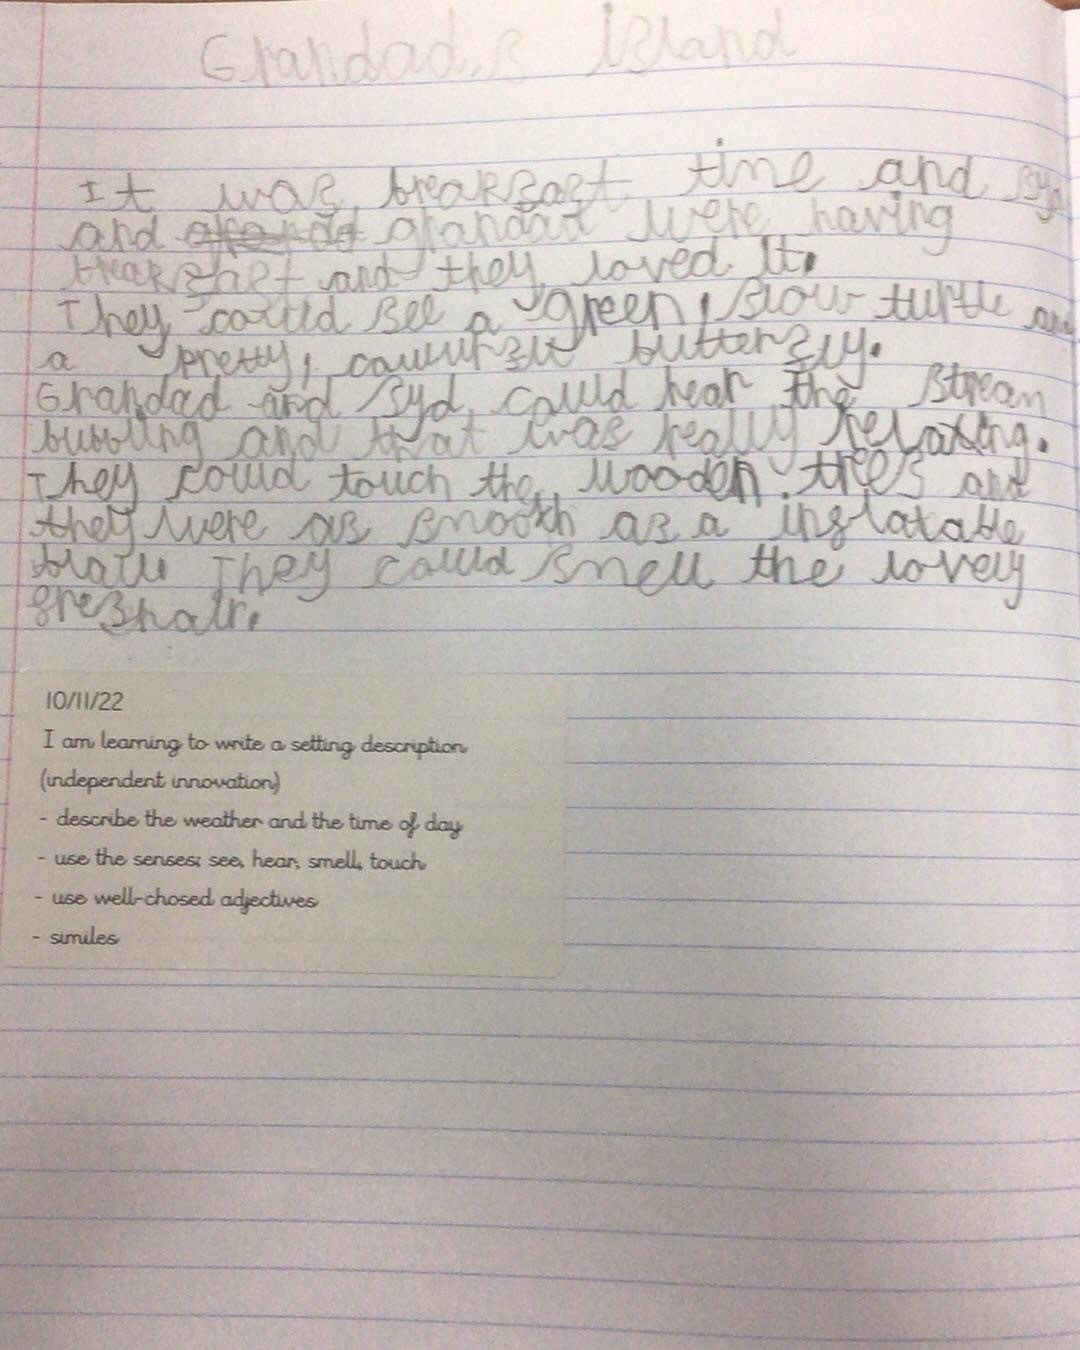 Grandad,s island
It was breakfast time and Syd
and grandad were having
breakfast and they loved it.
They could see a green, slow turtle and
a pretty, butterfly.
Grandad and Syd could hear the stream
bubbling and that was really relaxing.
They could touch the wooden trees and
they were as smooth as a inflatable
They could smell the lovely
freshair.
10/11/22
I am learning to write a setting description
(independent innovation)
- describe the weather and the time of day
- use the senses; see, hear, smell, touch
- use well-chosed adjectives
- similes